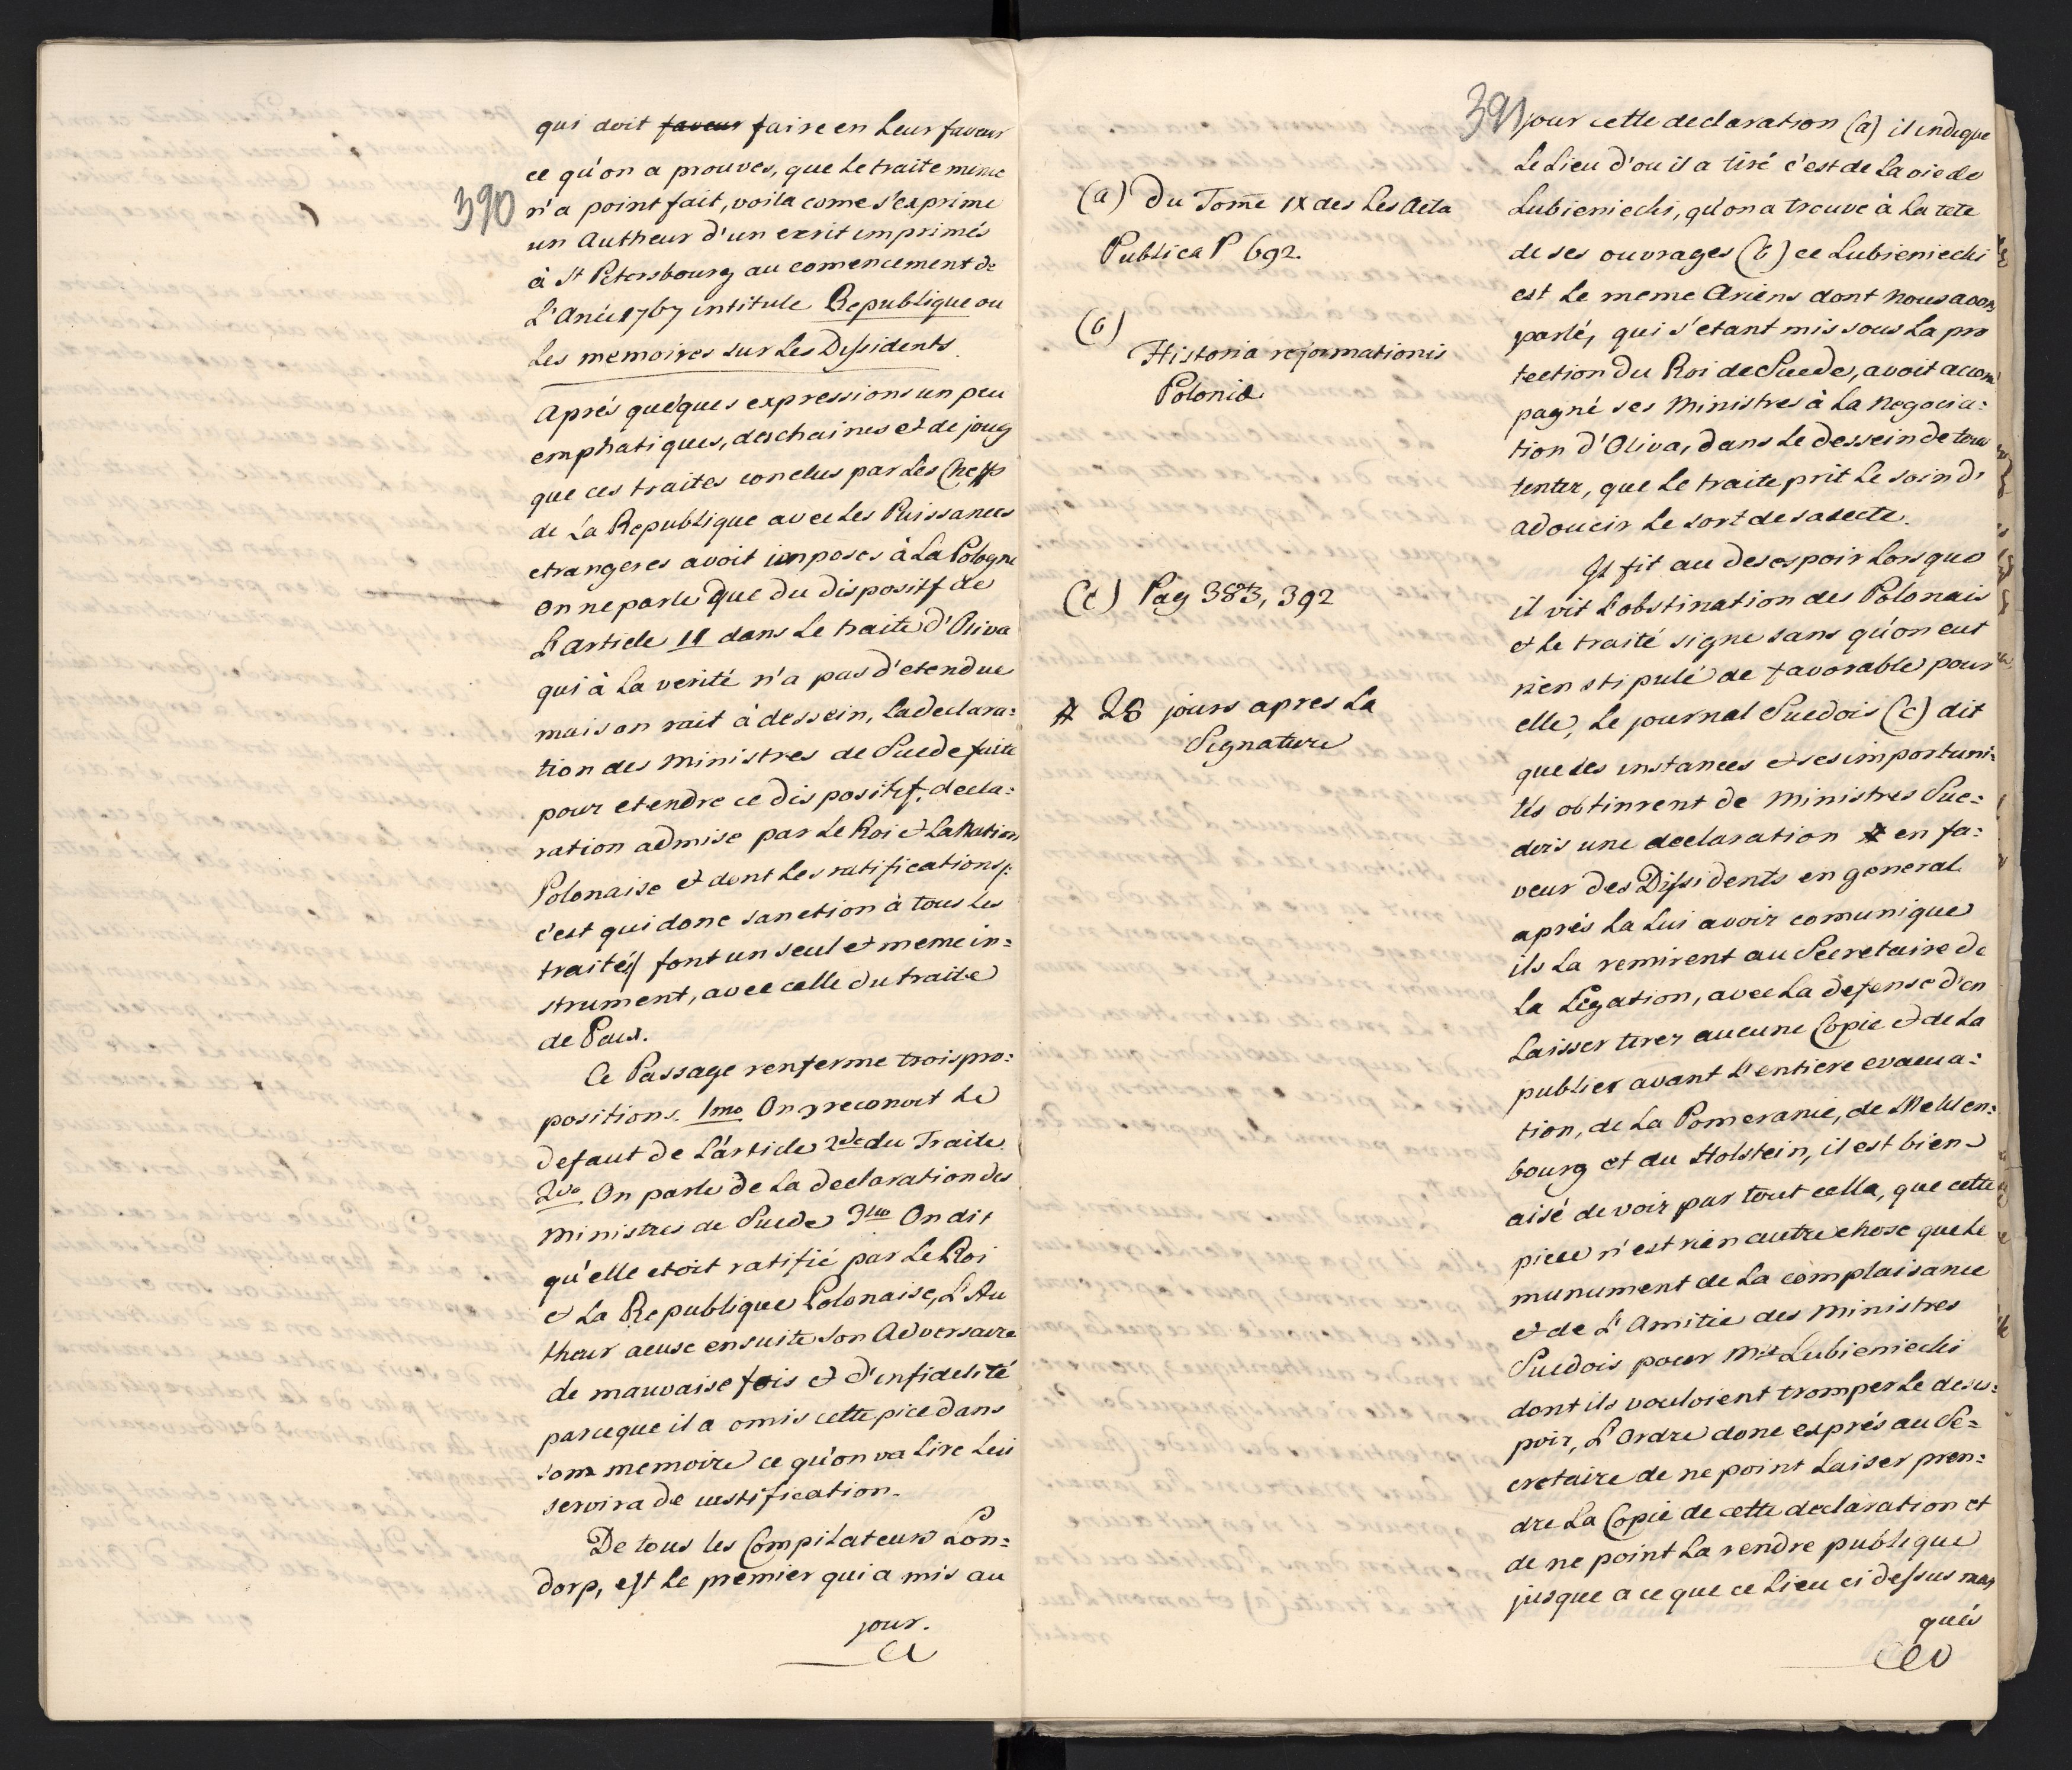 390
qui doit faveur faire en Leur faveur
ce qu'on a prouves, que Le traite meme
n'a point fait, voila come s'exprime
un Autheur d'un ecrit imprimés
à St Petersbourg au comencement de
L'Anée 1767 intitule Republique ou
Les memoires sur Les Dissidents.
Aprés quelques expressions un peu
emphatiques, des chaines et de joug
que ces traites conclus par Les Cheffs
de La Republique avec Les Puissances
etrangeres avoit imposes à La Pologne
on ne parle que du dispositf de
L'Article 11 dans Le traite d'Oliva
qui à La verité n'a pas d'etendue
mais on tait à dessein, La declara:
tion des Ministres de Suede faite
pour etendre ce dispositif, decla:
ration admise par Le Roi et La Nation
Polonaise et dont Les ratifications /:
c'est qui done sanction à tous Les
traités/ font un seul et meme in=
strument, avec celle du traite
de Paix.
Ce Passage renferme trois pro:
positions. 1mo On y reconoit Le
defaut de L'article 2de du Traite.
2do On parle de La declaration des
Ministres de Suede 3tio On dit
qu'elle etoit ratifié par Le Roi
et La Republique Polonaise, L'Au
theur acuse ensuite son Adversaire
de mauvaise fois et d'infidelité
parceque il a omis cette pice dans
son memoire ce qu'on va Lire Lui
servira de iustification.
De tous les Compilateurs Lon=
dorp, est Le premier qui a mis au
jour.
391
jour cette declaration (a) il indique
Le Lieu d'ou il a tiré c'est de La vie de
Lubieniecki, qu'on a trouve à La tete
de ses ouvrages (b) ce Lubieniecki
est Le meme Ariens dont nous avons
parlé, qui s'etant mis sous La pro
tection du Roi de Suede, avoit accom
pagné ses Ministres à La Negocia:
tion d'Oliva, dans Le dessein de
tenter, que Le traite prit Le soin d'
adoucir Le sort de sa secte.
Il fit au desespoir Lorsque
il vit L'obstination des Polonais
et Le traité signe sans qu'on eut
rien stipulé de favorable pour
elle, Le journal Suedois (c) dit
que ses instances et ses importuni=
tés obtinrent de Ministres Sue=
dois une declaration # en fa:
veur des Dissidents en general
aprés La Lui avoir comunique
ils La remirent au Secretaire de
La Légation, avec La defense d'en
Laisser tirer aucune Copie et de La
publier avant L'entiere evacua:
tion, de La Pomeranie, de Meklen:
bourg et du Holstein, il est bien
aisé de voir par tout cella, que cette
piece n'est rien autre chose que Le
munument de La complaisance
et de L'Amitie des Ministres
Suedois pour Mr Lubieniecki
dont ils vouloient tromper Le deses:
poir, L'Ordre done exprés au Se=
cretaire de ne point Laiser pren=
dre La Copie de cette declaration et
de ne point La rendre publique
jusque a ce que ce Lieu ci dessus mar
qués
(a) Du Tome IX des Les Acta
Publica P 692.
(b)
Historia reformationis
Poloniæ
(c) Pag 383, 392
# 28 jours apres La
Signature